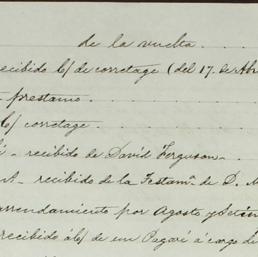 de la vuelta
ecibido c/ de corretage (del 17. de Abr
prestamo
c/ corretage
recibido de David Ferguson
recibido de la Testam. de D. M
arrendamiento por Agosto y Setiem
recibido á c/ de un Pagaré á cargo d